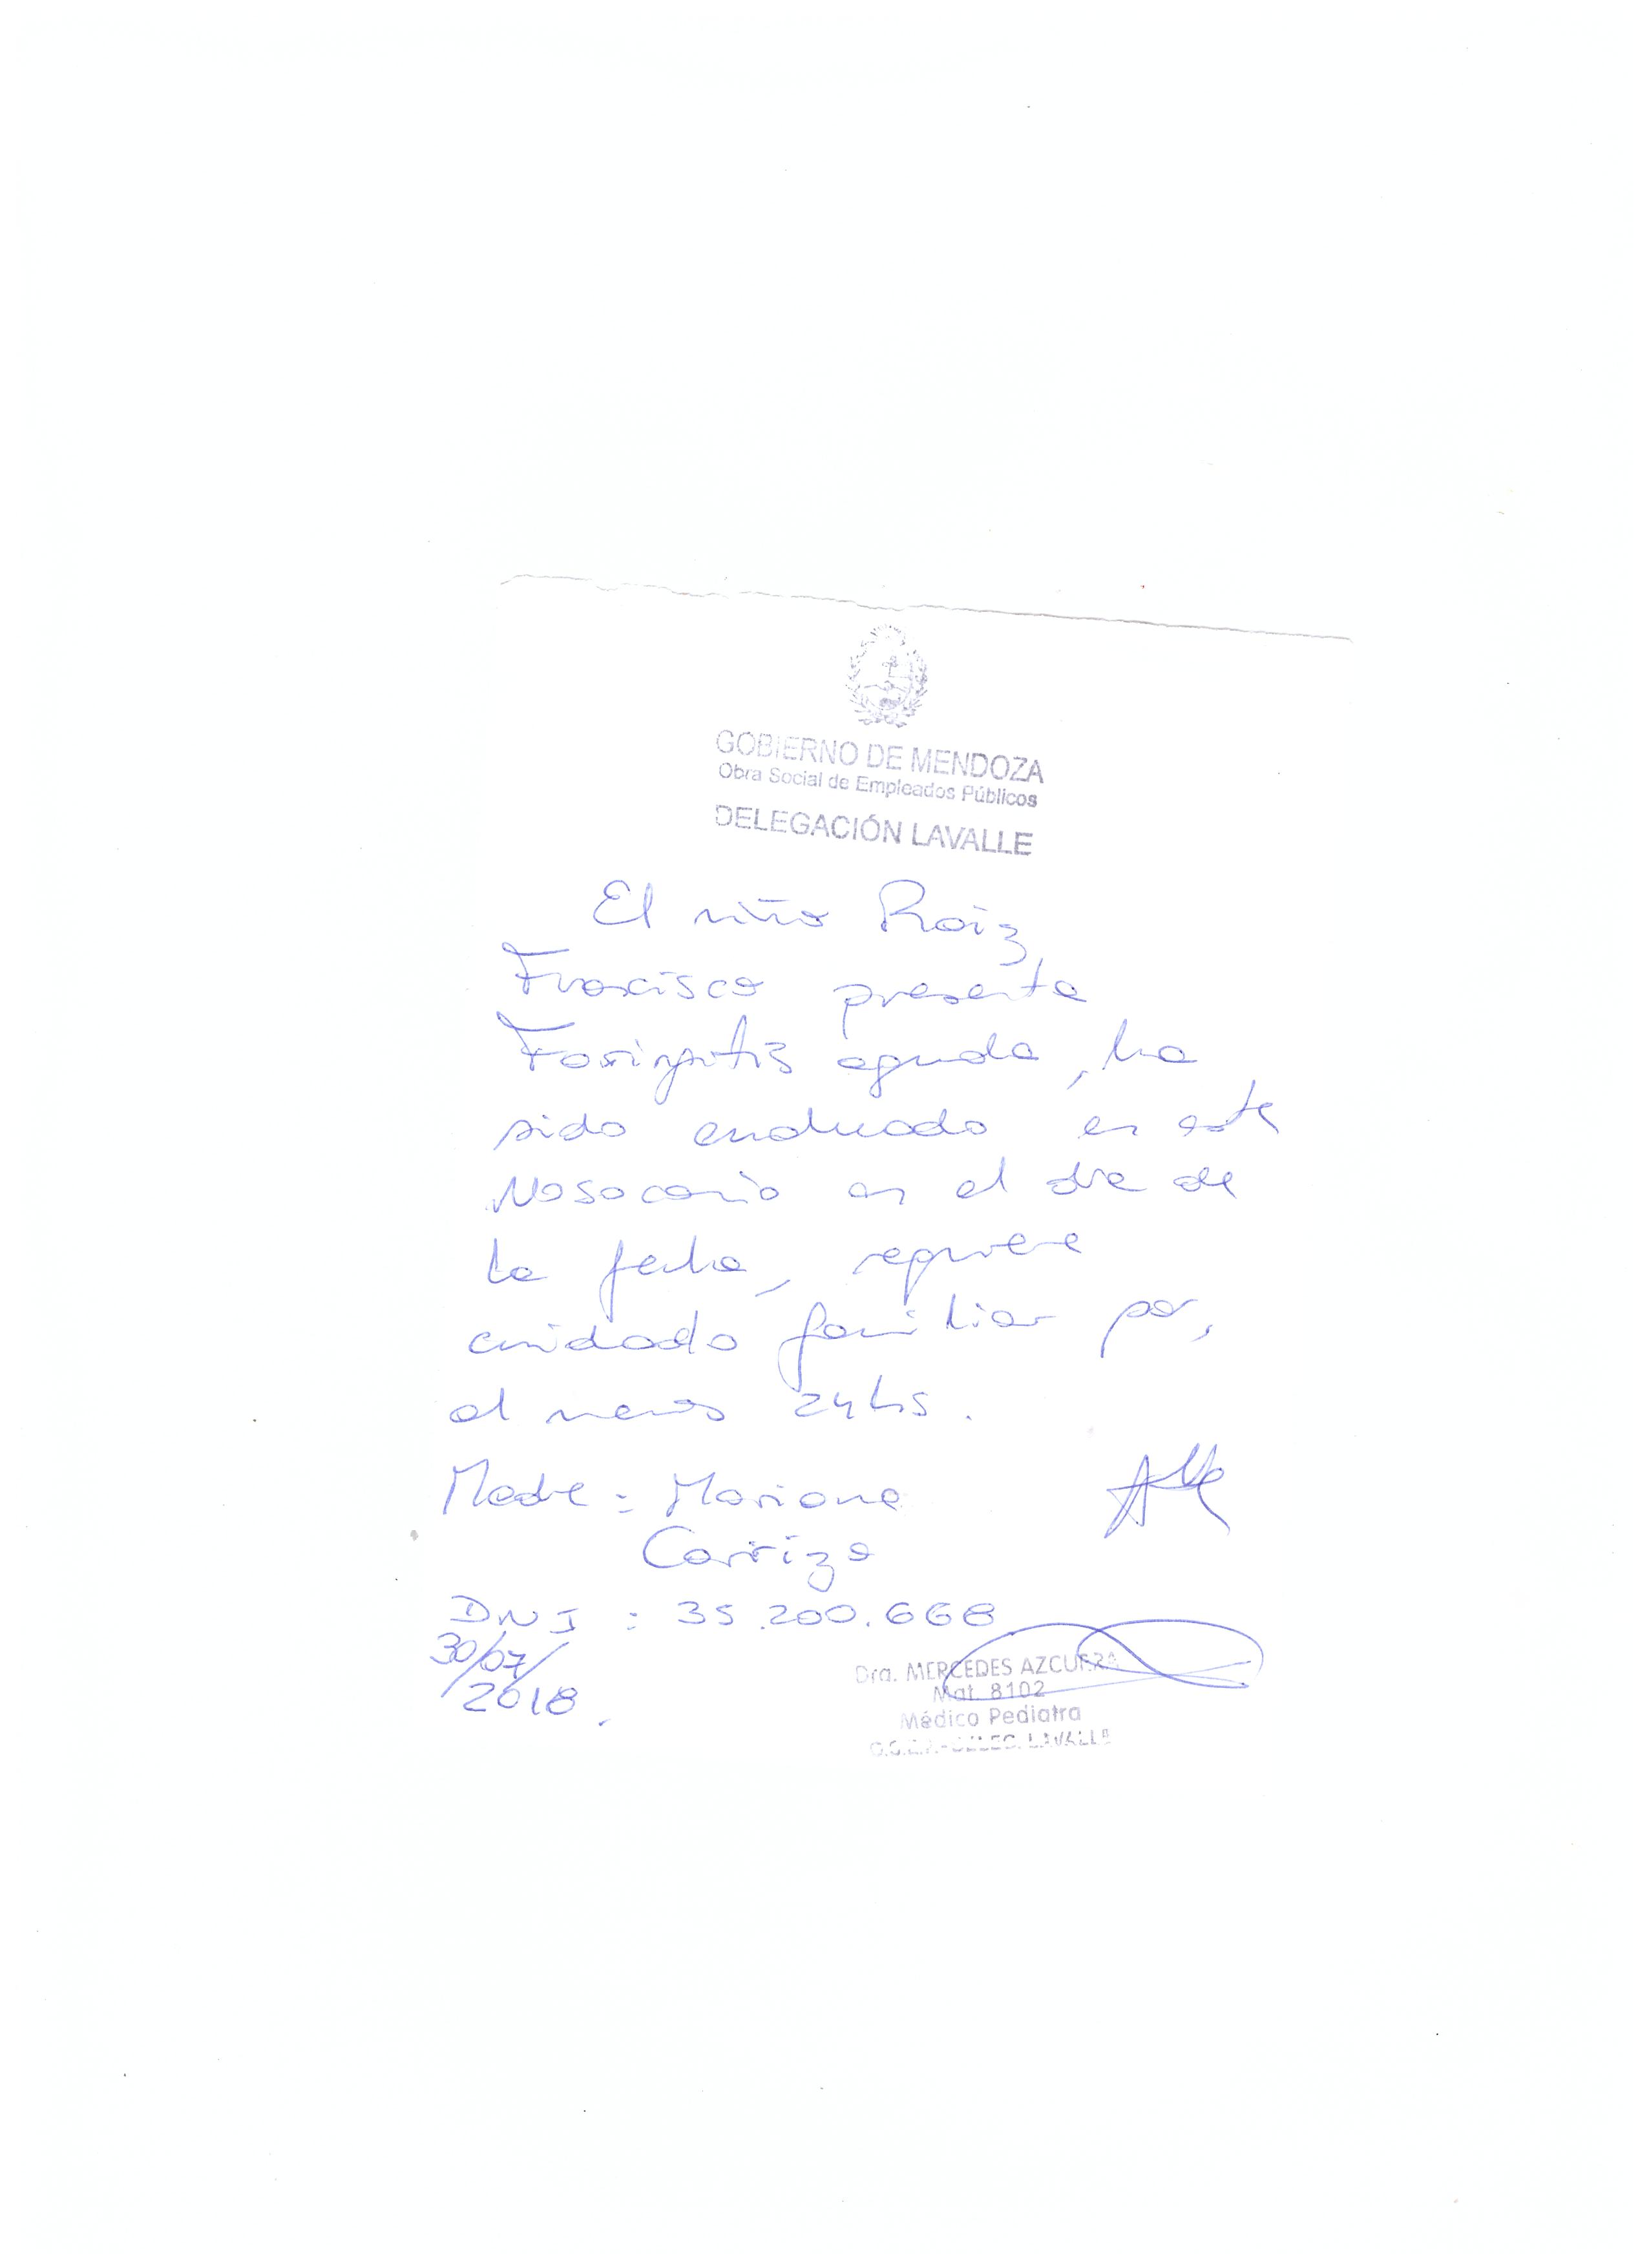 GOBIERNO DE MENDOZA
Obra Social de Empleados Públicos
DELEGACIÓN LAVALLE
El niño Roiz,
Francisco presenta
Faringitis aguda, ha
sido evaluado en este
Nosocomio en el día de
la fecha, requiere
cuidado familiar por,
al menos 24hs.
Madre: Mariana
Carrizo
DNI: 35.200.668
30/07/
2018.
Dra. MERCEDES AZCURRA
Mat. 8102
Médico Pediatra
O.S.E.P.-DELEG. LAVALLE